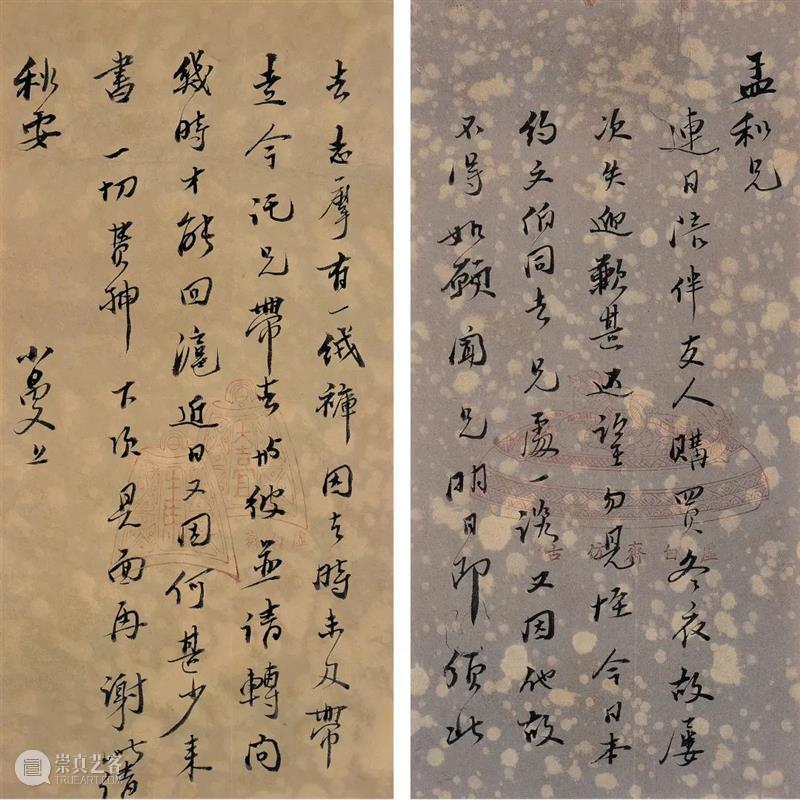 孟和兄
連日陪伴友人購買冬衣故屢
次失迎歉甚还望勿見怪今日本
約文伯同去兄處一談又因他故
不得如願聞兄明日即須北
去志摩有一絨褲因去時未及帶
走今託兄帶去与彼並請轉問
幾時才能回滬近日又因何甚少来
書一切費神下次見面再謝此請
秋安
小曼上
虛白齋仿古
崇真艺客
TRUEART.COM